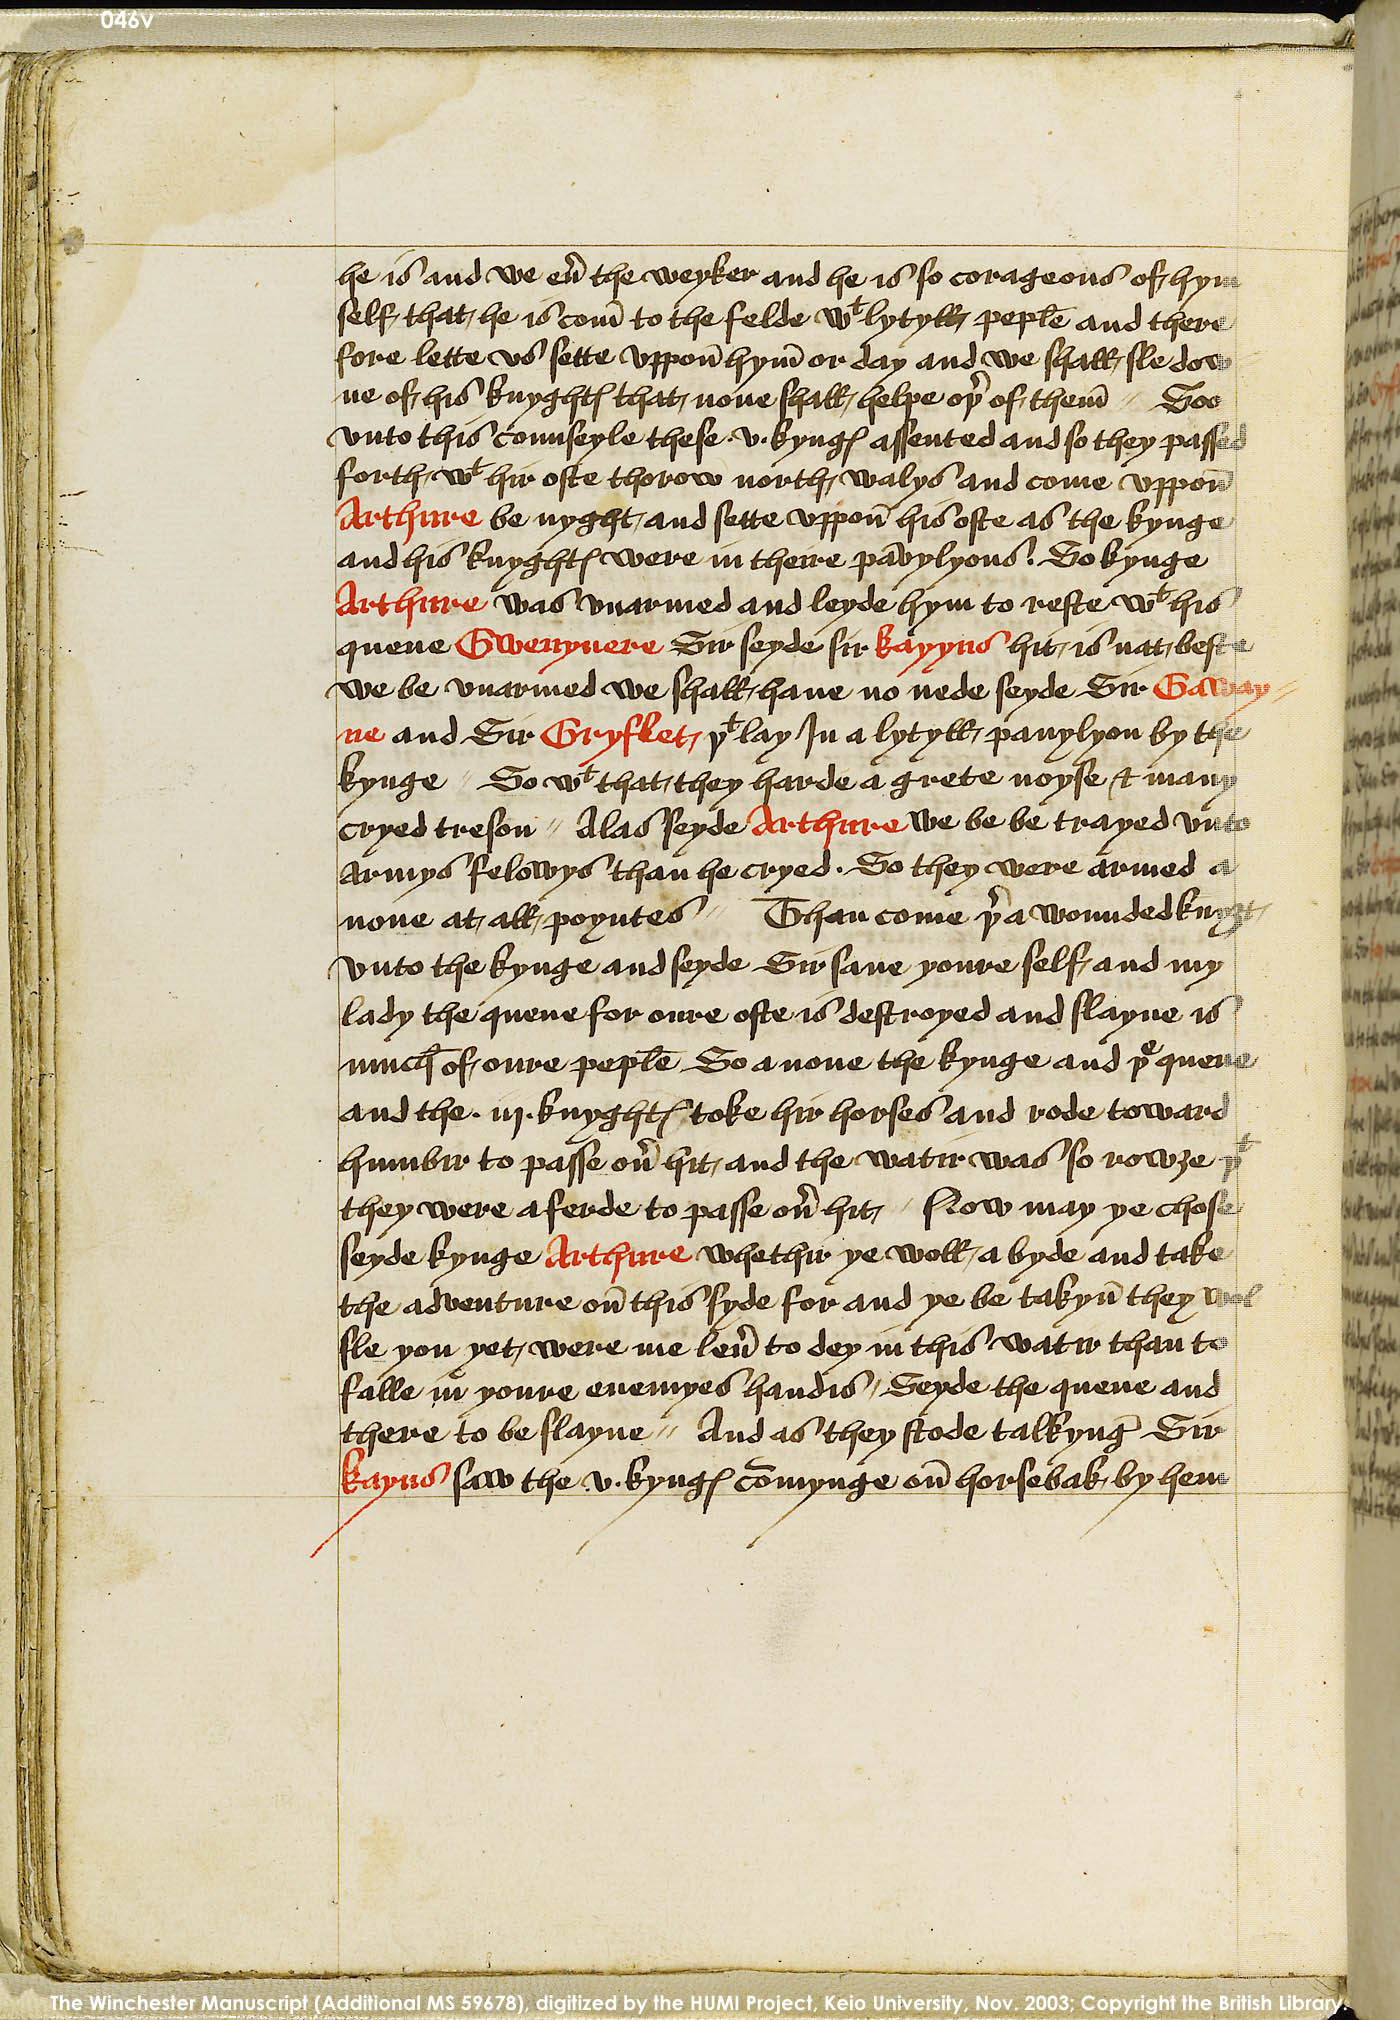 046v
he is and we eũ the weyker and he is so corageous of hym
self that he is com̄ to the felde wᵗ lytyll peple and there
fore lette vs sette vppon̄ hym̄ or day and we shall sle dow
ne of his knyghtꝭ that none shall helpe oþͬ of them̄ // Soo
vnto this counseyle these .v. kyngꝭ assented and so they passed
forth wᵗ hir oste thorow north walys and come vppon̄
Arthure be nyght and sette vppon̄ his oste as the kynge
and his knyghtꝭ were in theire pavylyons. So kynge
Arthure was vnarmed and leyde hym to reste wᵗ his
quene Gwenyvere Sir seyde sir kayyus hit is nat beste
we be vnarmed we shall haue no nede seyde Sir Gaway//
ne and Sir Gryflet þᵗ lay In a lytyll pauylyon by the
kynge // So wᵗ that they harde a grete noyse & many
cryed treson // Alas seyde Arthure we be be trayed vnto
Armys felowys than he cryed . So they were armed a
none at all poyntes // Than come þͬ a wounded knyȝt
vnto the kynge and seyde Sir saue youre self and my
lady the quene for oure oste is destroyed and slayne is
much̄ of oure peple So a none the kynge and þᵉ quene
and the .iij. knyghtꝭ toke hir horses and rode toward
humbir to passe oũ hit and the watir was so rowȝe þᵗ
they were aferde to passe oũ hit // Now may ye chose
seyde kynge Arthure whethir ye woll a byde and take
the adventure on̄ this syde for and ye be takyn̄ they wol
sle you yet were me leũ to dey in this watir than to
falle in youre enemyes handis / Seyde the quene and
there to be slayne // And as they stode talkynḡ Sir
kayus saw the .v. kyngꝭ cōmynge on̄ horsebak by hem
The Winchester Manuscript (Additional MS 59678), digitized by the HUMI Project, Keio University, Nov. 2003; Copyright the British Library.